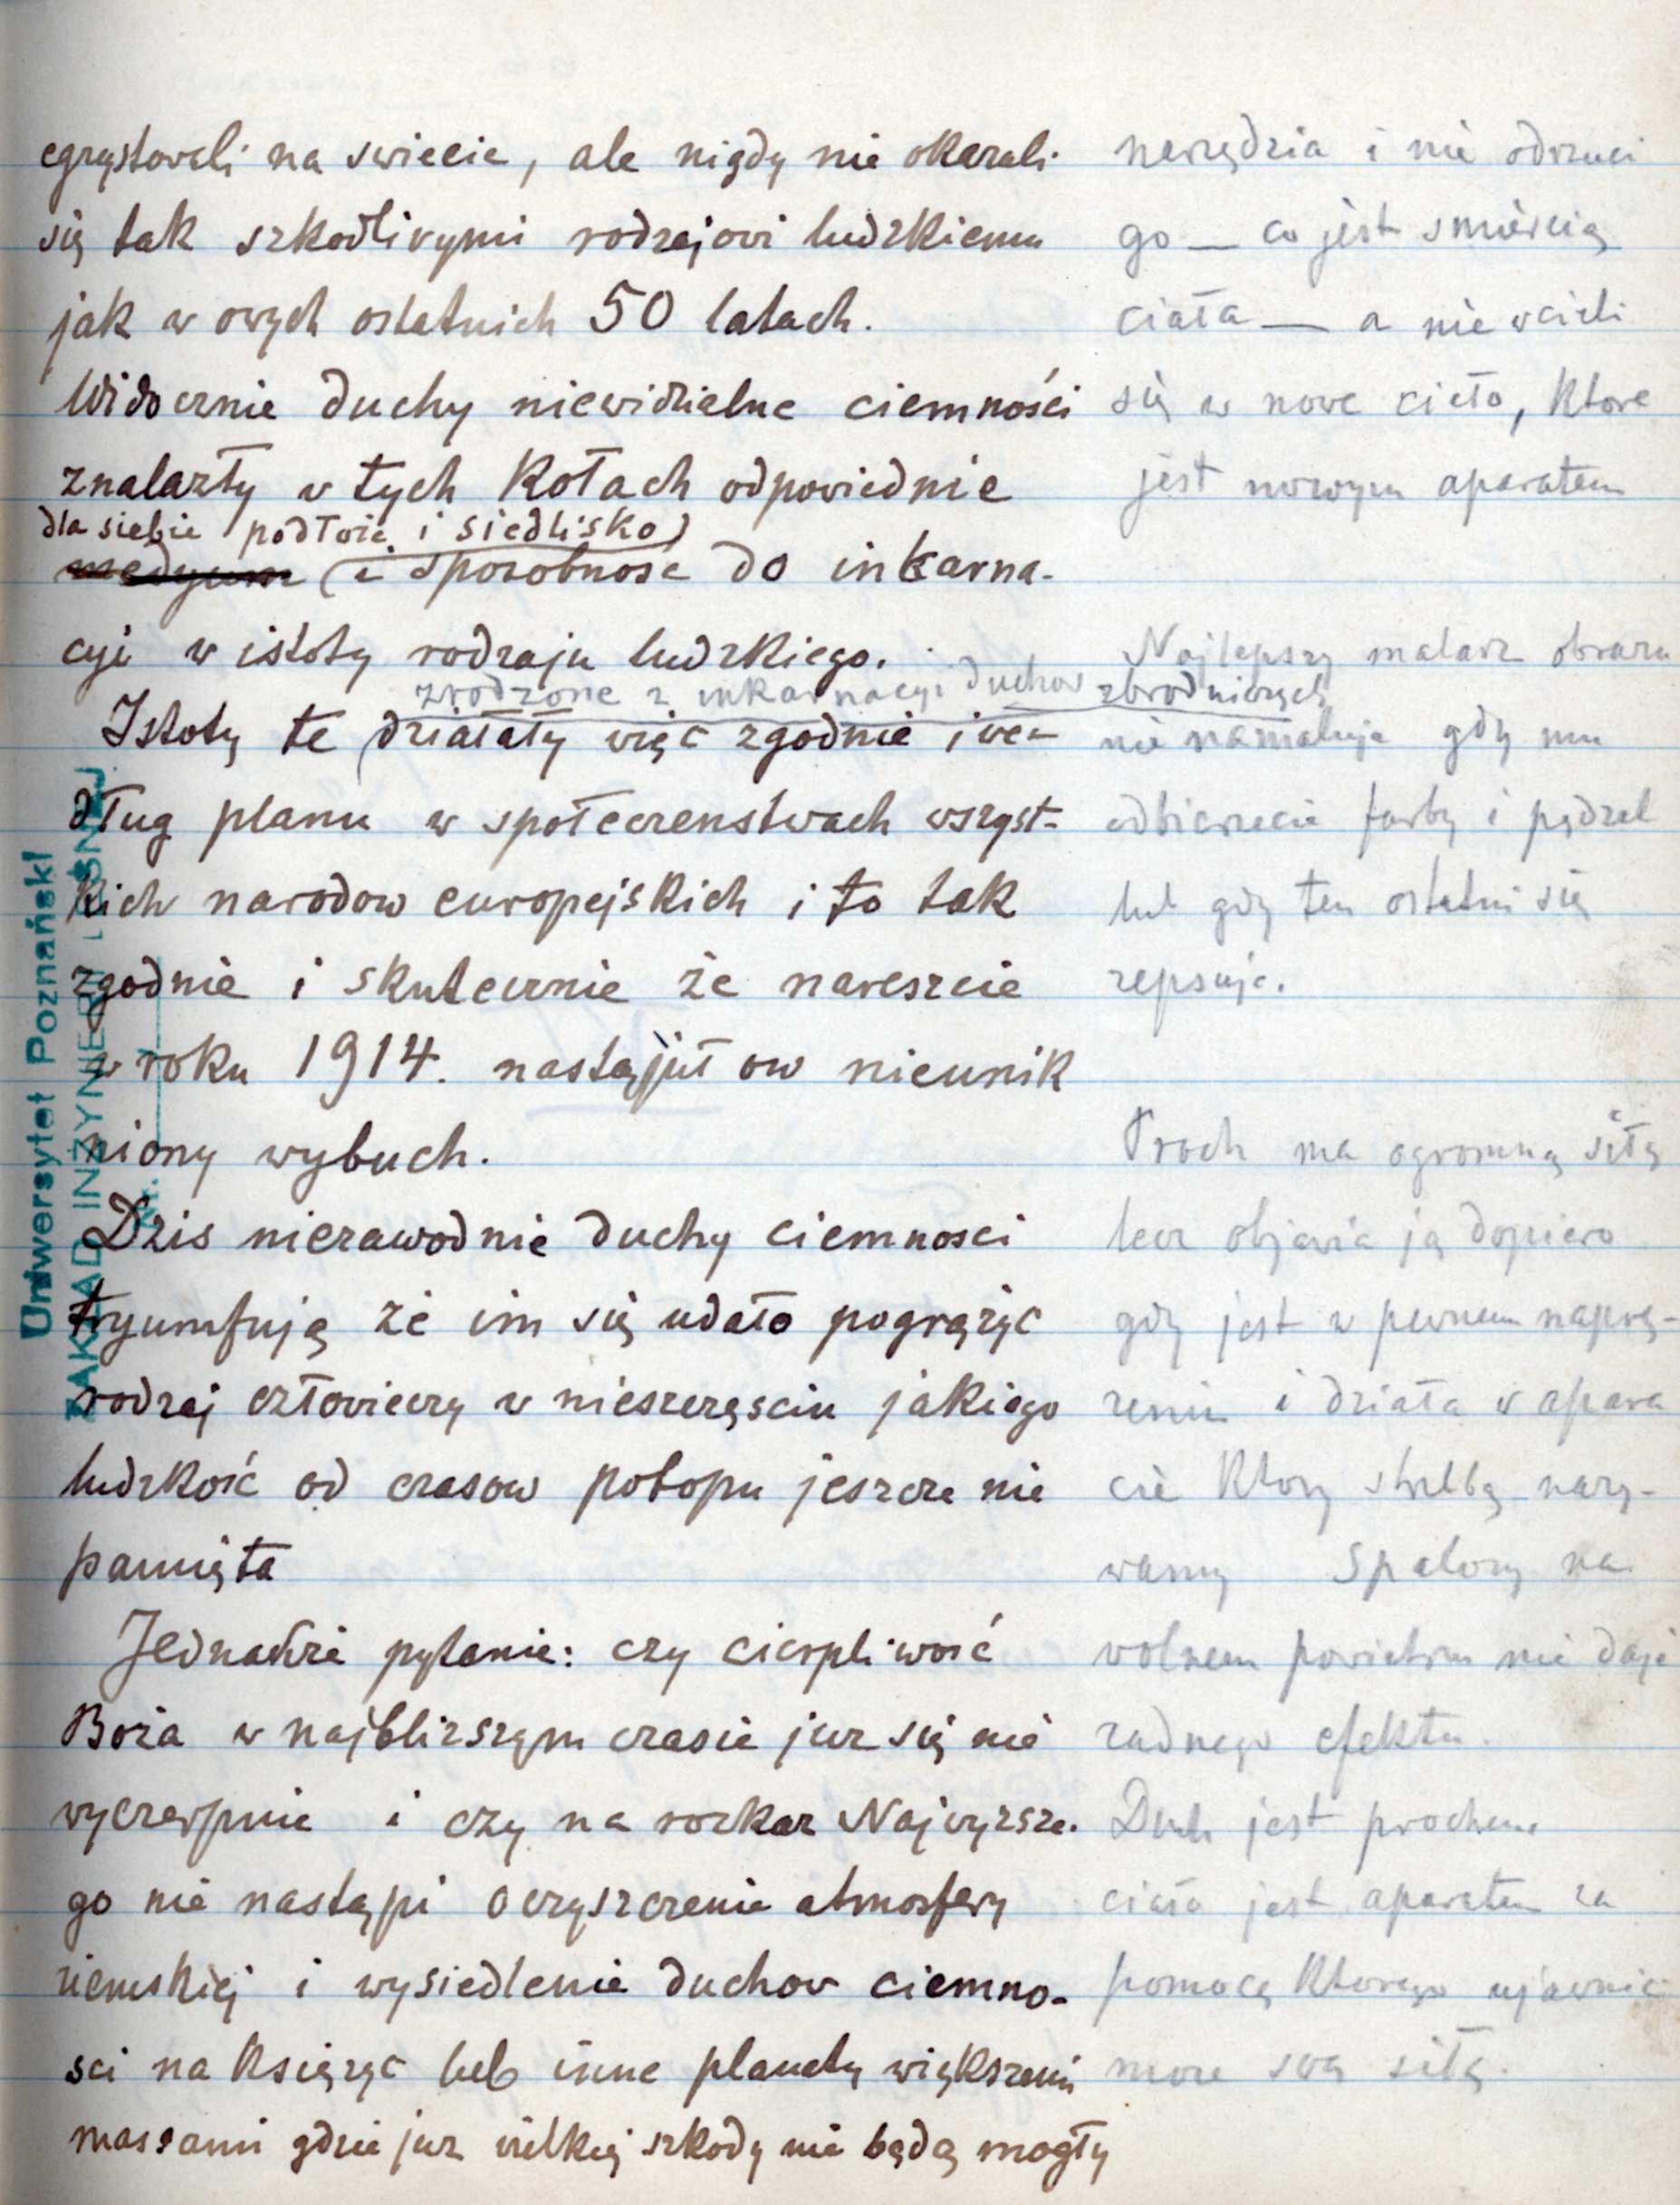 egzystowali na swiecie, ale nigdy nie okazali
się tak szkodliwymi rodzajowi ludzkiemu
jak w owych ostatnich 50 latach.
Widocznie duchy niewidzialne ciemności
znalazły w tych kołach odpowiednie
dla siebie podłoże i siedlisko
medyum (i sposobnosć do inkarna-
cyi w istoty rodzaju ludzkiego.
zrodzone z inkarnacyi duchow zbrodniczych
Istoty te działały więc zgodnie i we-
dług planu w społeczenstwach wszyst-
kich narodow europejskich i to tak
zgodnie i skutecznie że nareszcie
w roku 1914. nastąpił ow nieunik
niony wybuch.
Dzis niezawodnie duchy ciemnosci
tryumfują że im się udało pogrążyc
rodzaj człowieczy w nieszczęsciu jakiego
ludzkość od czasow potopu jeszcze nie
pamięta
Jednakże pytanie: czy cierpliwość
Boża w najblizszym czasie juz się nie
wyczerpnie i czy na rozkaz Najwyzsze-
go nie nastąpi oczyszczenie atmosfery
ziemskiej i wysiedlenie duchow ciemno-
sci na Księzyc lub inne planety większemi
massami gdzie juz wielkiej szkody nie będą mogły
narzędzia i nie odrzuci
go — co jest smiercią
ciała — a nie wcieli
się w nowe ciało, ktore
jest nowym aparatem
Najlepszy malarz obrazu
nie namaluje gdy mu
odbierzecie farby i pędzel
lub gdy ten ostatni się
zepsuje.
Proch ma ogromną siłę
lecz objawia ją dopiero
gdy jest w pewnem napręz-
zeniu i działa w apara
cie ktory strzelbą nazy-
wamy Spalony na
wolnem powietrzu nie daje
zadnego efektu.
Duch jest prochem
ciało jest aparatem za
pomocą ktorego ujawnic
moze swą siłę.
Uniwersytet Poznański
ZAKŁAD INŻYNIERII LEŚNEJ